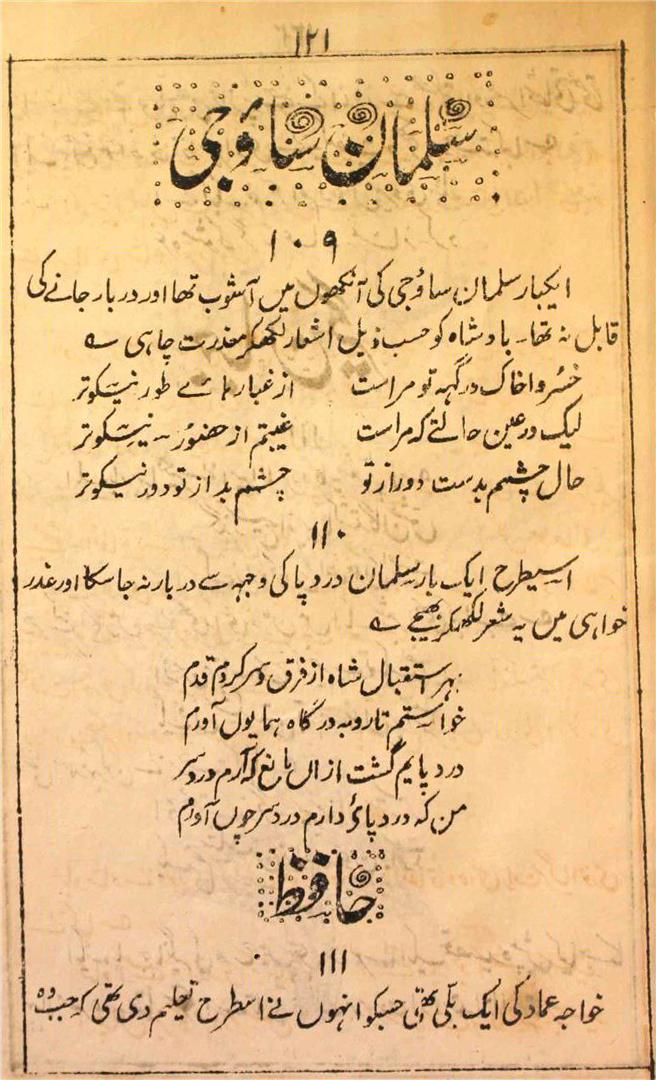 ۱۲۱
سلمان ساؤجی
۱۰۹
ایکبار سلمان ساؤجی کی آنکھوں میں آشوب تھا اور دربار جانے کی
قابل نہ تھا۔ بادشاہ کو حسب ذیل اشعار لکھکر معذرت چاہی ے
خسروا خاک درگہہ تو مراست از غبار مائے طور نیسکوتر
لیک در عین حالتے کہ مراست غیبتم از حضور۔ نیسکوتر
حال چشمم بدست دور از تو چشم بد از تو دور نیسکوتر
۱۱۰
اسیطرح ایک بار سلمان درد پا کی وجہہ سے دربار نہ جا سکا اور عذر
خواہی میں یہ شعر لکھکر بھیجے ے
بہر استقبال شاہ از فرق و سر کردم قدم
خواستم تا رو بدرگاہ ہمایوں آورم
درد پایم گشت ازاں مانع کہ آرم درد سر
من کہ درد پاؤ دارم درد سر چوں آورم
حافظ
۱۱۱
خواجہ عماد کی ایک بلی تھی جسکو انہوں نے اسطرح تعلیم دی تھی کہ جب وہ